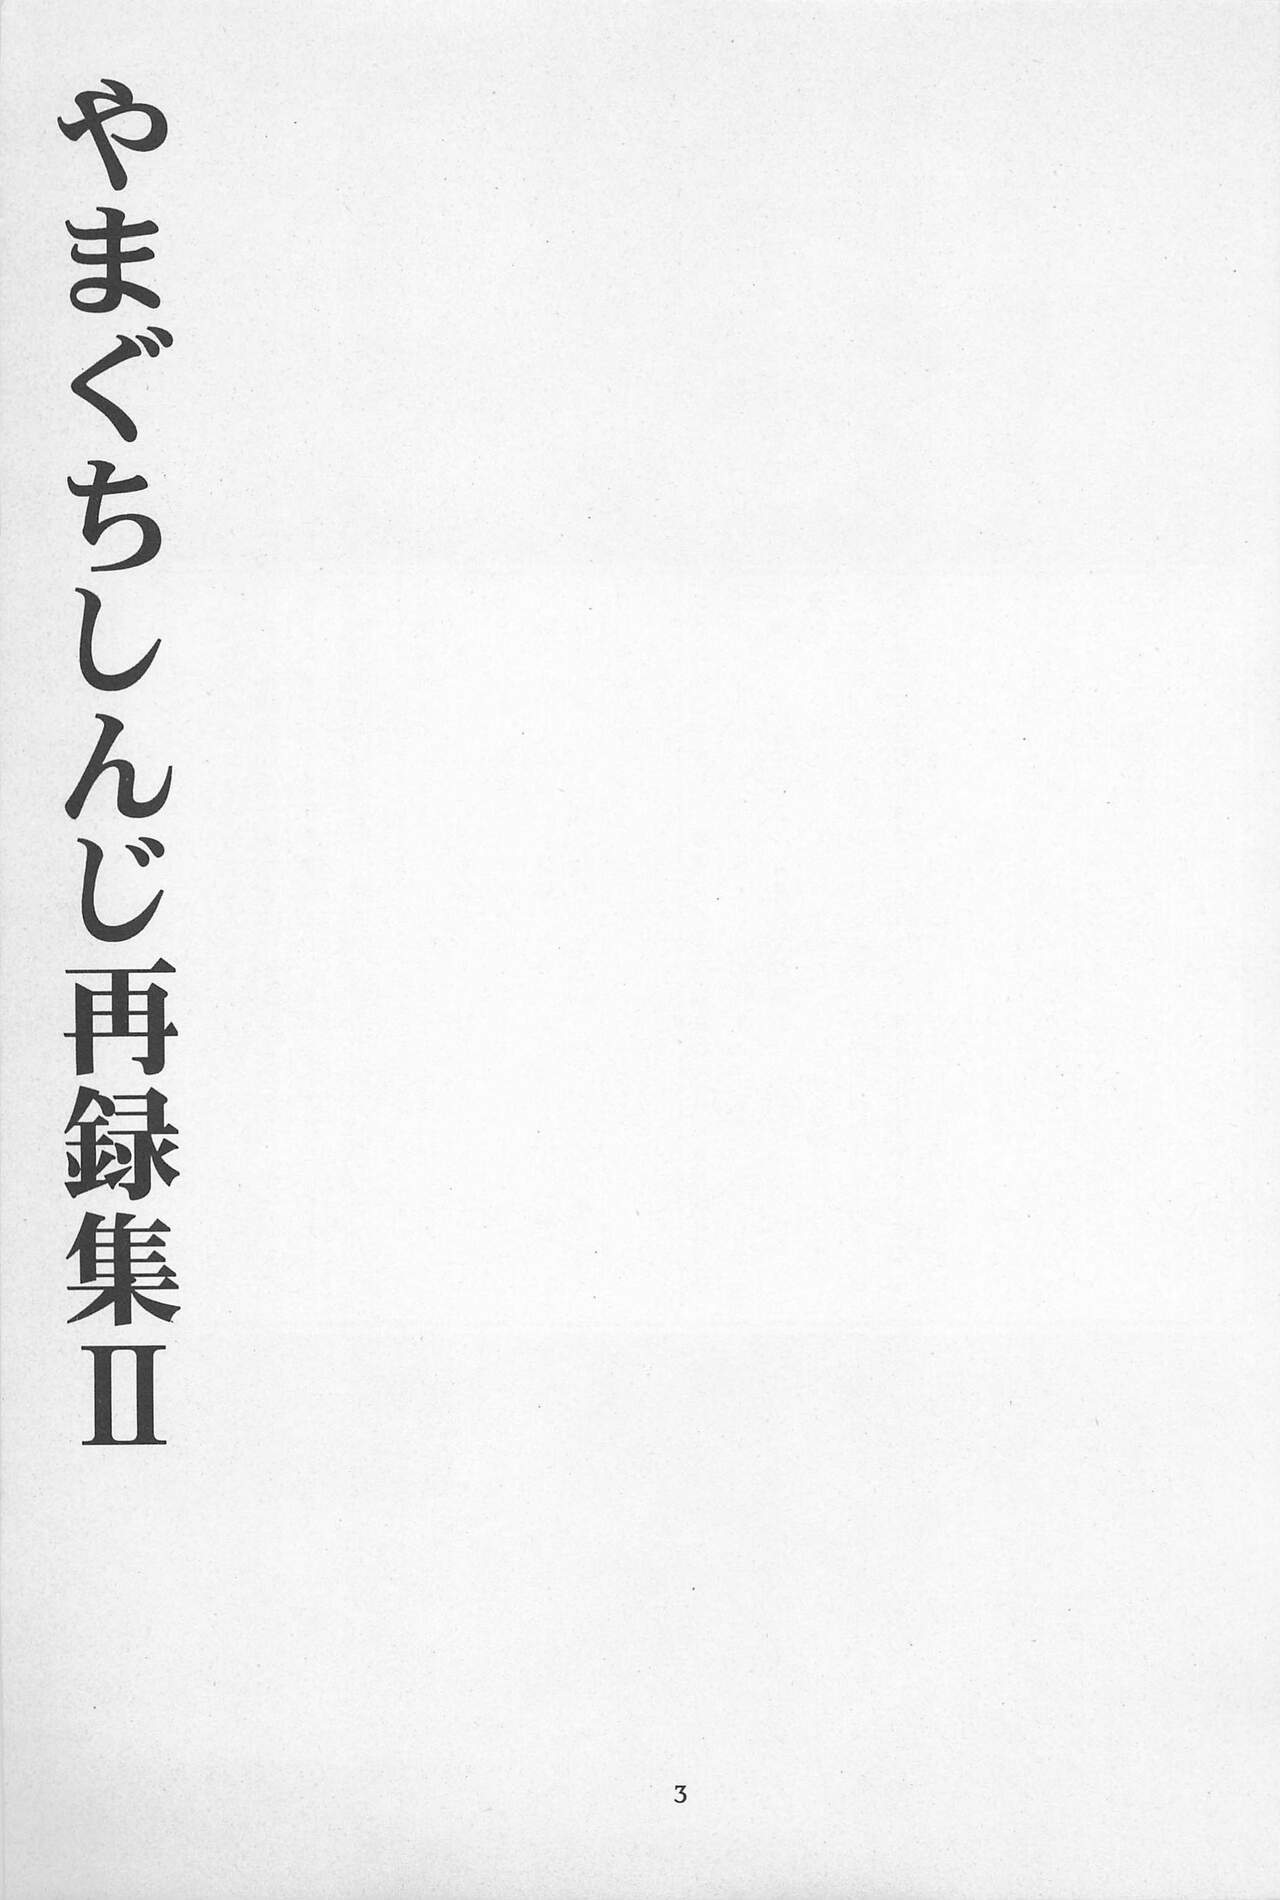 やまぐちしんじ再録集II
3